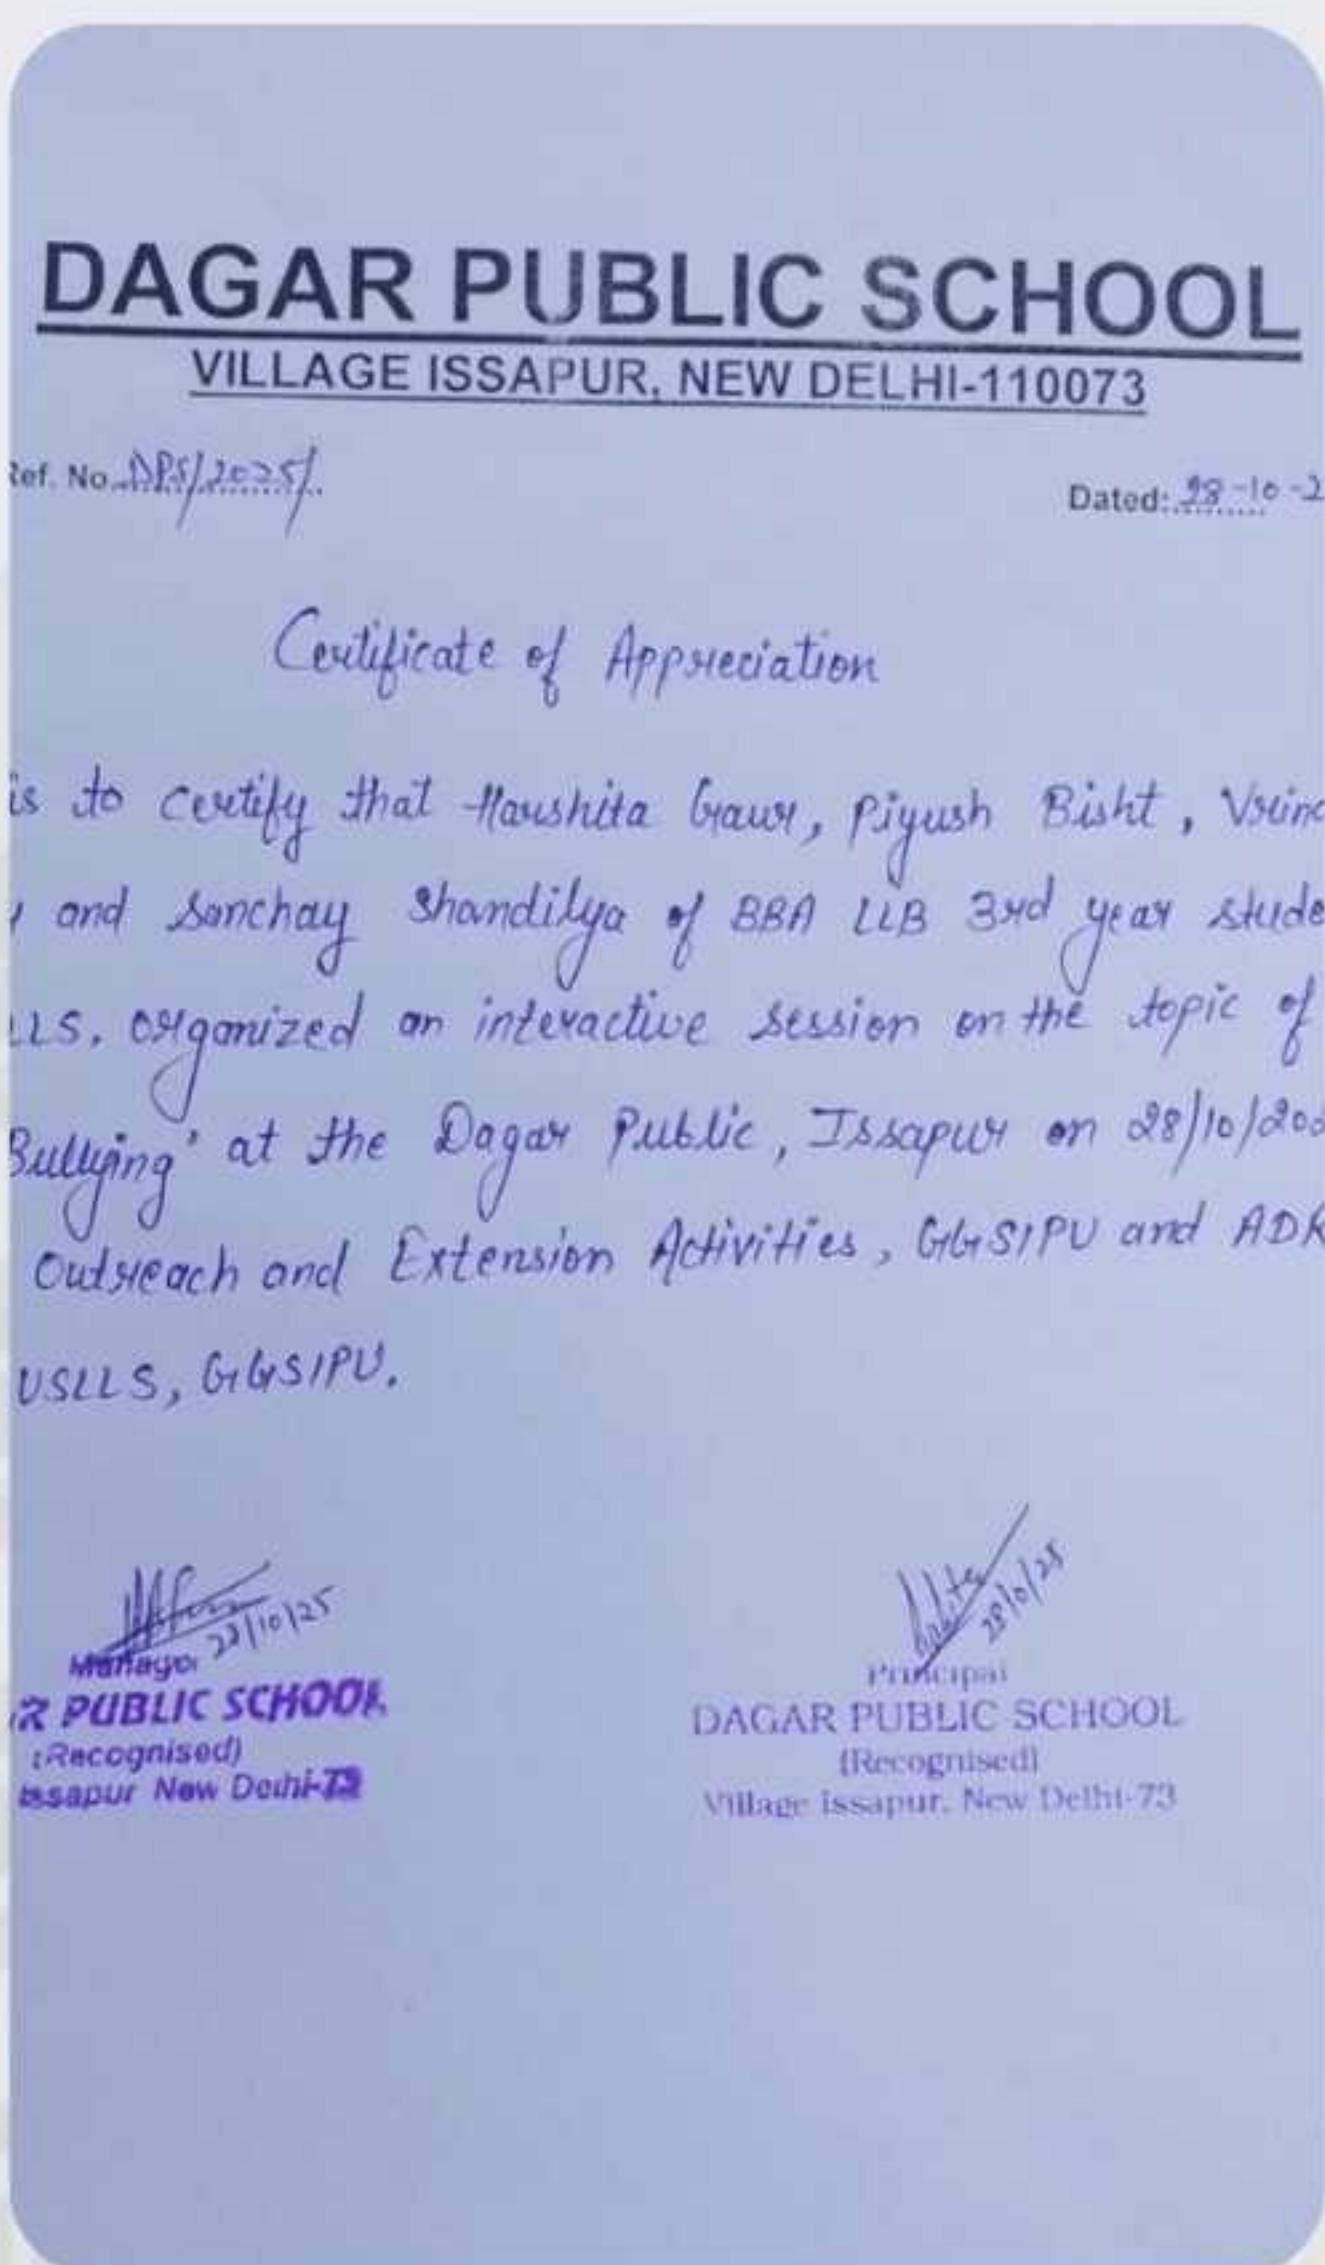 DAGAR PUBLIC SCHOOL
VILLAGE ISSAPUR, NEW DELHI-110073
Ref. No. DPS/2025/
Dated: 28-10-2
Certificate of Appreciation
is to certify that Harshita Gaur, Piyush Bisht, Vrind
and Sanchay Shandilya of BBA LLB 3rd year stude
LLS. organized an interactive session on the topic of
Bullying' at the Dagar Public, Issapur on 28/10/202
Outreach and Extension Activities, GGSIPU and ADR
USLLS, GGSIPU.
28/10/25
28/10/25
Manager
Principal
R PUBLIC SCHOOL
DAGAR PUBLIC SCHOOL
(Recognised)
(Recognised)
Issapur New Delhi-73
Village Issapur, New Delhi-73